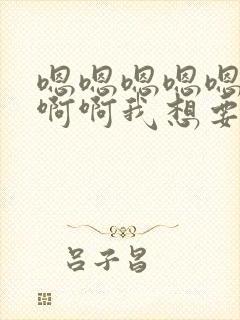 嗯嗯嗯嗯嗯
啊啊我想要
吕子昌